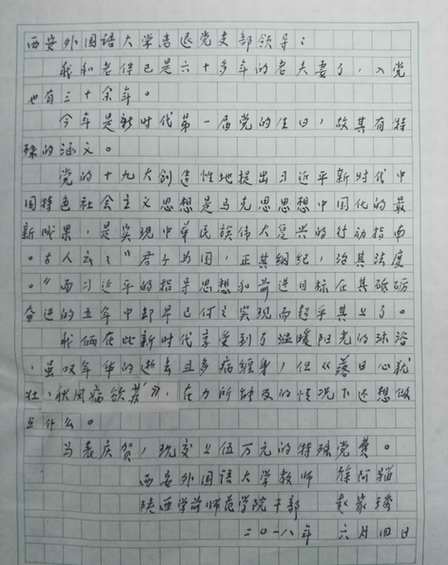 西安外国语大学离退党支部领导：
我和老伴已是六十多年的老夫妻了，入党
也有三十余年。
今年是新时代第一届党的生日，故具有特
殊的涵义。
党的十九大创造性地提出习近平新时代中
国特色社会主义思想是马克思思想中国化的最
新成果，是实现中华民族伟大复兴的行动指南
。古人云："君子为国，正其纲纪，治其法度
。"而习近平的指导思想和前进目标在其砥砺
奋进的五年中却早已付之实现而超乎其上了。
我俩在此新时代享受到了温暖阳光的沐浴
，虽叹年华的逝去且多病缠身，但《落日心犹
壮，秋风病欲苏》，在力所能及的情况下还想做
点什么。
为表庆贺，现交上伍万元的特殊党费。
西安外国语大学教师
陕西学前师范学院干部
二〇一八年 六月四日